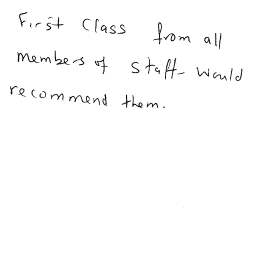 First Class from all
members of staff - would
recommend them.